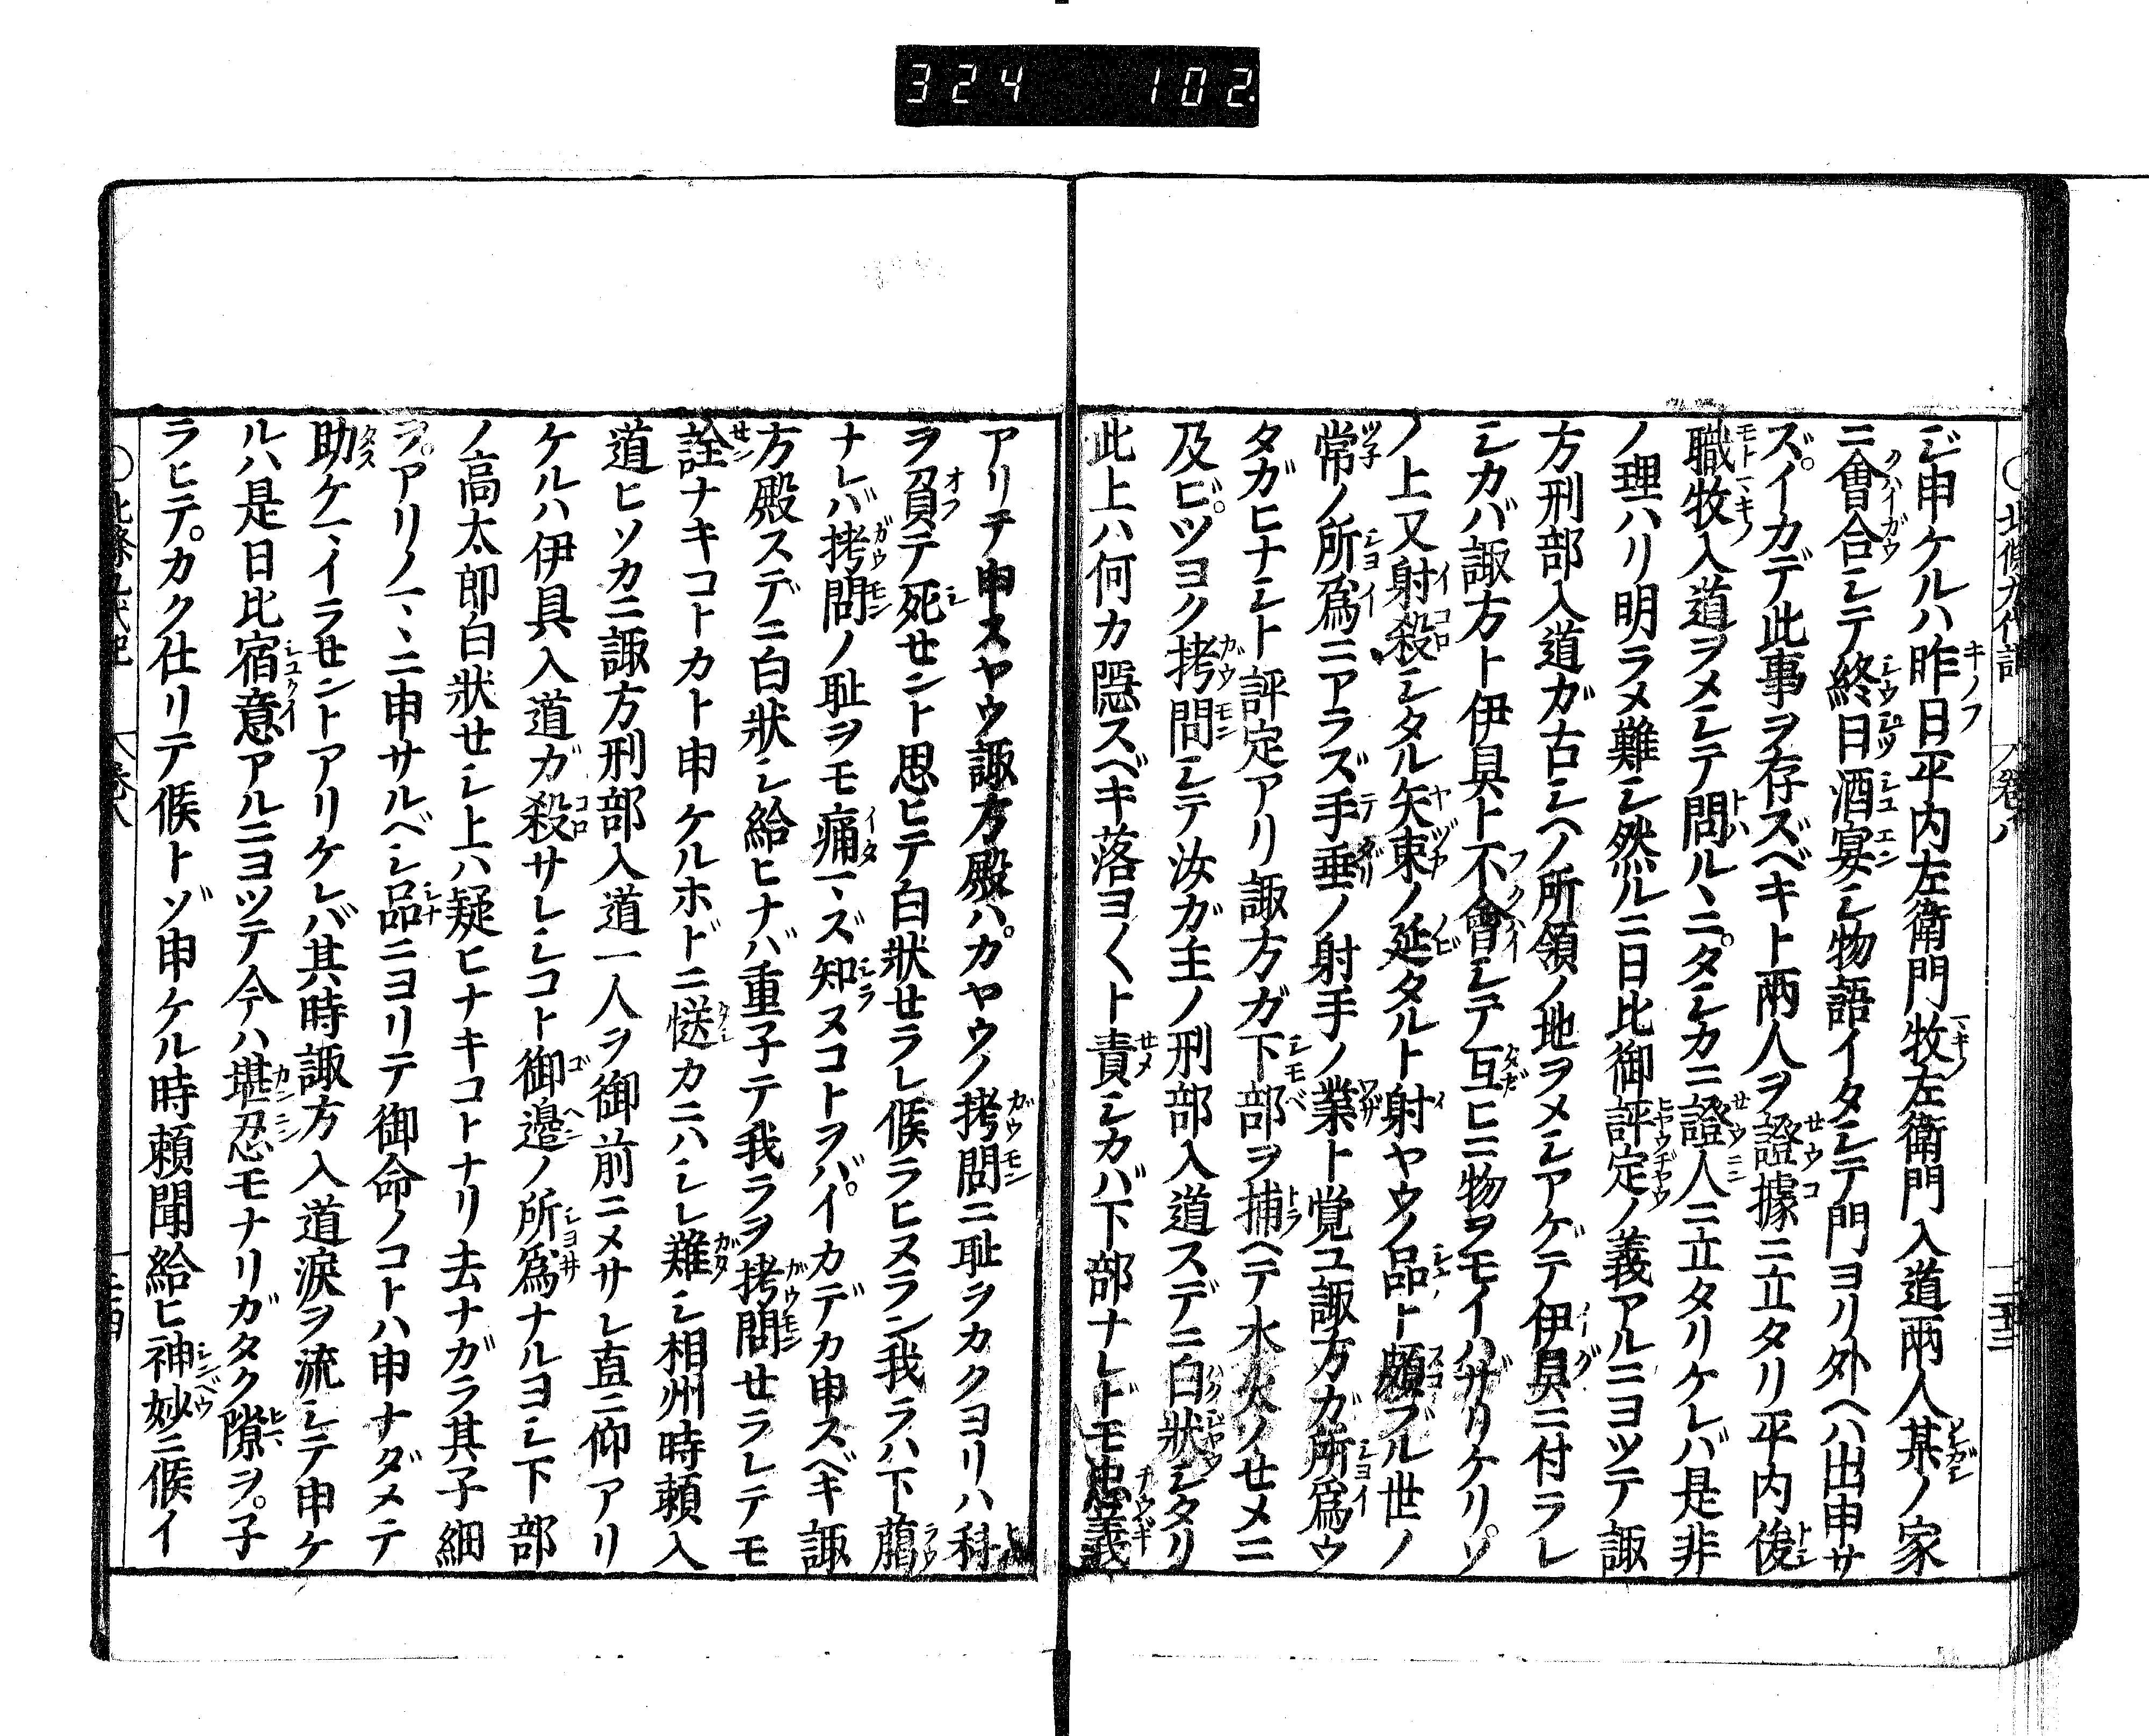 324 102.
ジ申ケルハ昨日平内左衛門牧左衛門入道両人某ノ家
ニ會合シテ終日酒宴シ物語イタシテ門ヨリ外ヘハ出申サ
ズ。イカデ此事ヲ存ズベキト両人ヲ證據ニ立タリ平内俊
職牧入道ヲメシテ問ルヽニ。タシカニ證人ニ立タリケレバ是非
ノ理ハリ明ラメ難シ然ルニ日比御評定ノ義アルニヨツテ諏
方刑部入道ガ古シヘノ所領ノ地ヲメシアゲテ伊具ニ付ラレ
シカバ諏方ト伊具ト不會シテ互ヒニ物ヲモイハザリケリ。ソ
ノ上又射殺シタル矢束ノ延タルト射ヤウノ品ト頗ブル世ノ
常ノ所爲ニアラズ手垂ノ射手ノ業ト覚ユ諏方ガ所爲ウ
タガヒナシト評定アリ諏方ガ下部ヲ捕ヘテ水火ノせメニ
及ビ。ツヨク拷問シテ汝ガ主ノ刑部入道スデニ白狀シタリ
此上ハ何カ隱スベキ落ヨ〱ト責シカバ下部ナレドモ忠義
アリテ申スヤウ諏方殿ハ。カヤウノ拷問ニ耻ヲカクヨリハ科
ヲ負テ死せント思ヒテ白狀せラレ候ラヒスラン我ラハ下﨟
ナレバ拷問ノ耻ヲモ痛マズ知ヌコトヲバ。イカデカ申スベキ諏
方殿スデニ白狀シ給ヒナバ重子テ我ラヲ拷問せラレテモ
詮ナキコトカト申ケルホドニ慥カニハシレ難シ相州時頼入
道ヒソカニ諏方刑部入道一人ヲ御前ニメサレ直ニ仰アリ
ケルハ伊具入道ガ殺サレシコト御邊ノ所爲ナルヨシ下部
ノ高太郎白狀せシ上ハ疑ヒナキコトナリ去ナガラ其子細
ヲ。アリノマヽニ申サルベシ品ニヨリテ御命ノコトハ申ナダメテ
助ケマイラせントアリケレバ其時諏方入道淚ヲ流シテ申ケ
ルハ是日比宿意アルニヨツテ今ハ堪忍モナリガタク隙ヲ。子
ラヒテ。カク仕リテ候トゾ申ケル時頼聞給ヒ神妙ニ候イ